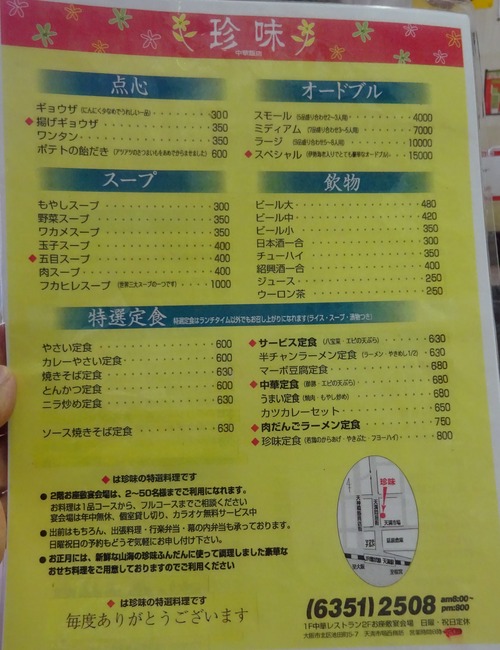 珍味
中華飯店
点心
ギョウザ(にんにく少なめでうれしい一品) 300
◆揚げギョウザ 350
ワンタン 350
ポテトの飴だき(アツアツのさつまいもをあめでからませました) 600
オードブル
スモール(5品盛り合わせ2~3人用) 4000
ミディアム(7品盛り合わせ3~5人用) 7000
ラージ(9品盛り合わせ5~8人用) 10000
◆スペシャル(伊勢海老入りでとても豪華なオードブル) 15000
スープ
もやしスープ 300
野菜スープ 350
ワカメスープ 350
玉子スープ 400
◆五目スープ 400
肉スープ 400
フカヒレスープ(世界三大スープの一つです) 1000
飲物
ビール大 480
ビール中 420
ビール小 350
日本酒一合 300
チューハイ 350
紹興酒一合 400
ジュース 250
ウーロン茶 250
特選定食 特選定食はランチタイム以外でもお召し上がりになれます(ライス・スープ・漬物つき)
やさい定食 600
カレーやさい定食 600
焼きそば定食 630
とんかつ定食 600
ニラ炒め定食 630
ソース焼きそば定食 630
◆サービス定食(八宝菜・エビの天ぷら) 630
半チャンラーメン定食(ラーメン・やきめし1/2) 630
マーボ豆腐定食 680
◆中華定食(酢豚・エビの天ぷら) 680
うまい定食(焼肉・もやし炒め) 680
カツカレーセット 650
◆肉だんごラーメン定食 750
◆珍味定食(若鶏のからあげ・やきぶた・フヨーハイ) 800
◆は珍味の特選料理です
●2階お座敷宴会場は、2~50名様までご利用になれます。
お料理は1品コースから、フルコースまでご相談ください
宴会場は年中無休、個室貸し切り、カラオケ無料サービス中
●出前はもちろん、出張料理・行楽弁当・幕の内弁当も承っております。
日曜祝日の予約もどうぞ気軽にお申し付け下さい。
●お正月には、新鮮な山海の珍味ふんだんに使って調理しました豪華な
おせち料理をご用意しておりますのでご利用ください
◆は珍味の特選料理です
毎度ありがとうございます
珍味
天満市場
(6351)2508 am8:00~
pm:800
1F中華レストラン2Fお座敷宴会場 日曜・祝日定休
大阪市北区池田町5-7 天満市場西側筋